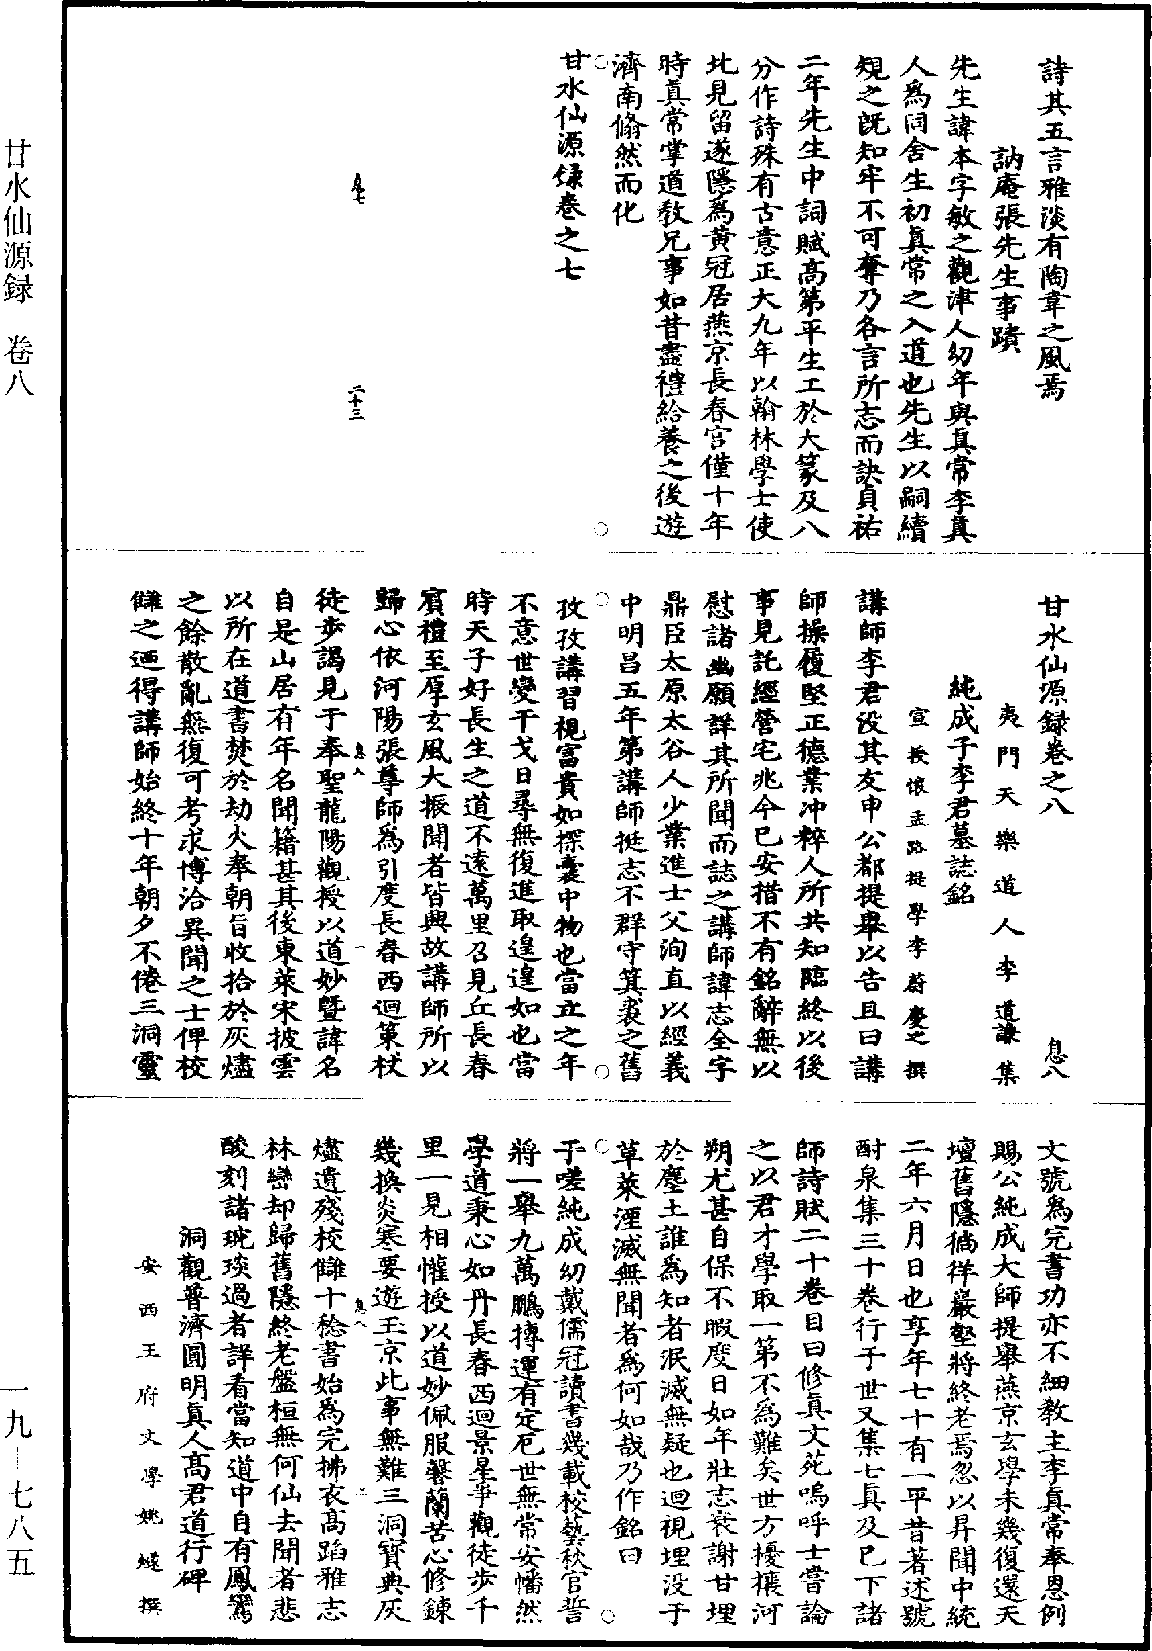 詩其五言雅淡有陶韋之風焉
訥庵張先生事蹟
先生諱本字敏之觀津人幼年與真常李真
人為同舍生初真常之入道也先生以嗣續
規之旣知牢不可奪乃各言所志而訣貞祐
二年先生中詞賦高第平生工於大篆及八
分作詩殊有古意正大九年以翰林學士使
北見留遂隱為黃冠居燕京長春宮僅十年
時真常掌道教兄事如昔盡禮給養之後遊
濟南翛然而化
甘水仙源録卷之七
息七
二十三
甘水仙源録卷之八
息八
夷門天樂道人李道謙集
純成子李君墓誌銘
宣授懷孟路提學李蔚慶之撰
講師李君没其友申公都提舉以告且曰講
師操履堅正德業冲粹人所共知臨終以後
事見託經營宅兆今已安措不有銘辭無以
慰諸幽願詳其所聞而誌之講師諱志全字
鼎臣太原太谷人少業進士父洵直以經義
中明昌五年第講師挺志不群守箕裘之舊
孜孜講習視富貴如探囊中物也當立之年
不意世變干戈日尋無復進取遑遑如也當
時天子好長生之道不遠萬里召見丘長春
賓禮至厚玄風大振聞者皆興故講師所以
歸心依河陽張尊師為引度長春西迴策杖
息八
一
徒步謁見于奉聖龍陽觀授以道妙暨諱名
自是山居有年名聞籍甚其後東萊宋披雲
以所在道書焚於劫火奉朝旨收拾於灰燼
之餘散亂無復可考求博洽異聞之士俾校
讎之迺得講師始終十年朝夕不倦三洞靈
文號為完書功亦不細教主李真常奉恩例
賜公純成大師提舉燕京玄學未幾復還天
壇舊隱徜徉巖壑將終老焉忽以昇聞中統
二年六月日也享年七十有一平昔著述號
酎泉集三十卷行于世又集七真及已下諸
師詩賦二十卷目曰修真文苑嗚呼士嘗論
之以君才學取一第不為難矣世方擾攘河
朔尤甚自保不暇度日如年壯志衰謝甘埋
於塵土誰為知者泯滅無疑也迴視埋没于
草萊湮滅無聞者為何如哉乃作銘曰
于嗟純成幼戴儒冠讀書幾載校藝秋官誓
將一舉九萬鵬摶運有定厄世無常安幡然
學道秉心如丹長春西迴景星爭觀徒步千
里一見相懽授以道妙佩服馨蘭苦心修鍊
幾換炎寒要遊玉京此事無難三洞寶典灰
息八
二
燼遺殘校讎十稔書始為完拂衣高蹈雅志
林巒却歸舊隱終老盤桓無何仙去聞者悲
酸刻諸琬琰過者詳看當知道中自有鳳鸞
洞觀普濟圓明真人高君道行碑
安西王府文學姚燧撰
甘水仙源録　卷八
一九—七八五